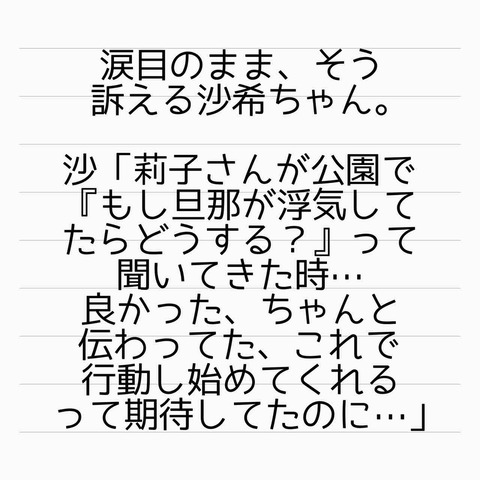 涙目のまま、そう
訴える沙希ちゃん。
沙「莉子さんが公園で
『もし旦那が浮気して
たらどうする？』って
聞いてきた時…
良かった、ちゃんと
伝わってた、これで
行動し始めてくれる
って期待してたのに…」